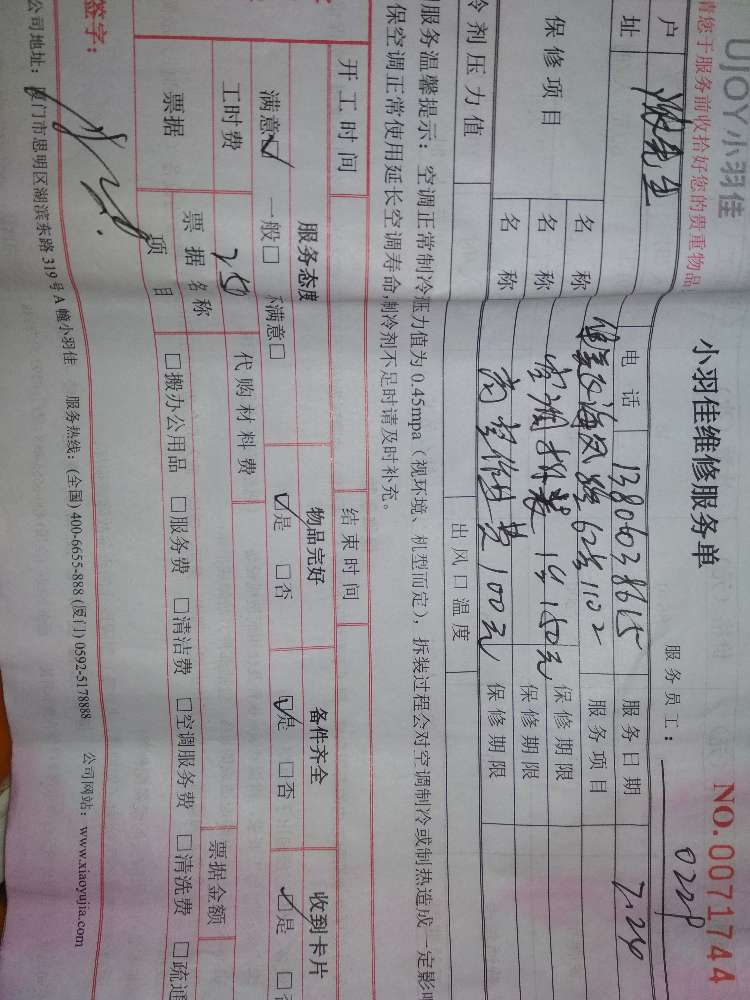 UJOY小羽佳
NO.0071744
小羽佳维修服务单
服务员工： 0228
请您于服务前收拾好您的贵重物品
户 先生 电话 13806038615 服务日期 7.24
址 海凤 62号1102 服务项目
保修项目 名称 空调拆装 1台 150元 保修期限
名称 高空作业费 100元 保修期限
名称 保修期限
冷剂压力值 出风口温度
服务温馨提示：空调正常制冷压力值为0.45mpa（视环境、机型而定），拆装过程会对空调制冷或制热造成一定影响
保空调正常使用延长空调寿命，制冷剂不足时请及时补充。
开工时间 结束时间
服务态度 物品完好 备件齐全 收到卡片
满意☑ 一般□ 不满意□ ☑是 □否 ☑是 □否 ☑是 □否
工时费 250 代购材料费 票据金额
票据 票据名称
项目 □搬办公用品 □服务费 □清洁费 □空调服务费 □清洗费 □疏通
签字：
公司地址：厦门市思明区湖滨东路319号A幢小羽佳 服务热线：(全国) 400-6655-888 (厦门) 0592-5178888 公司网站：www.xiaoyujia.com